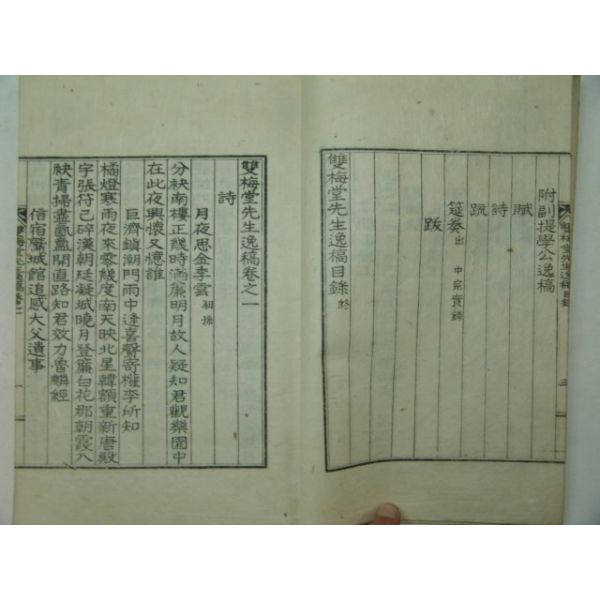 附副提學公逸稿
賦
詩
疏
筵奏 出中宗實錄
跋
雙梅堂先生逸稿目錄 終
雙梅堂先生逸稿卷之一
詩
月夜思金李雲
分袂南樓正幾時滿簾明月故人疑知君觀樂園中
在此夜興懷又憶誰
巨濟鎮潮門雨中逢喜聲寄權李所知
橘燈寒雨夜來零幾度南天映北星韓額重新唐殿
字張符已碎漢朝廷凝城曉月登簾白花郡朝霞入
袂青掃盡氛氳開直路知君效力魯麟經
信宿 城館追感大父遺事